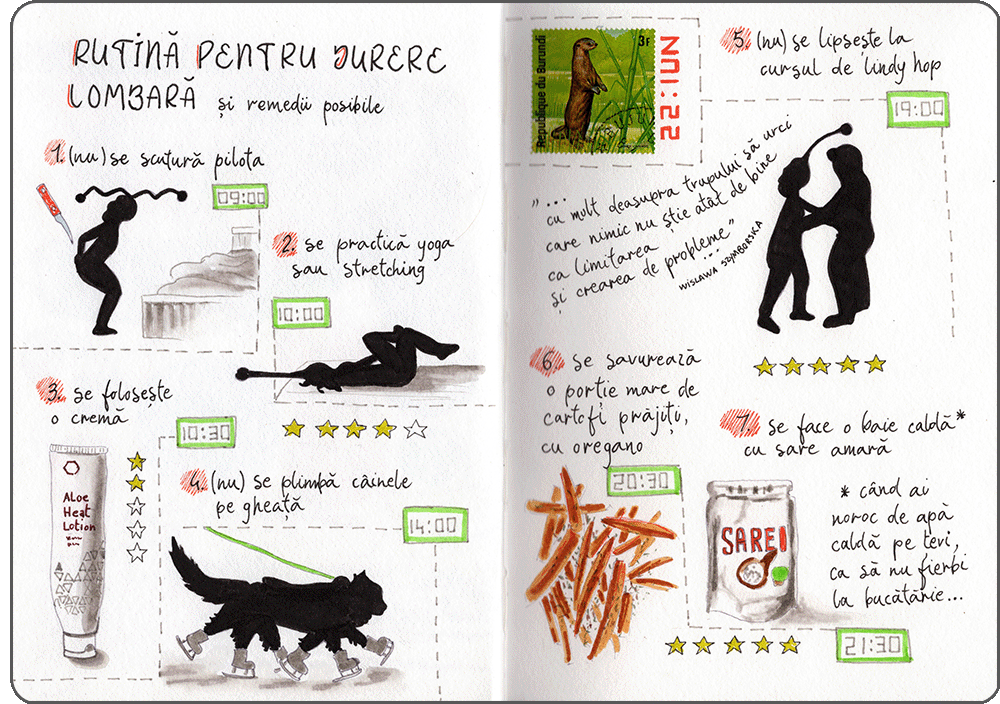 RUTINĂ PENTRU DURERE
LOMBARĂ și remedii posibile
1. (nu) se scutură pilota
09:00
2. se practică yoga
sau stretching
10:00
3. se folosește
o cremă
Aloe
Heat
Lotion
10:30
4. (nu) se plimbă câinele
pe gheață
14:00
Republique du Burundi
3F
22:IUN
5. (nu) se lipsește la
cursul de lindy hop
19:00
"...
cu mult deasupra trupului să urci
care nimic nu știe atât de bine
ca limitarea
și crearea de probleme"
...
WISLAWA SZYMBORSKA
6. se savurează
o porție mare de
cartofi prăjiți,
cu oregano
20:30
7. se face o baie caldă*
cu sare amară
SARE!
* când ai
noroc de apă
caldă pe țevi,
ca să nu fierbi
la bucătărie...
21:30